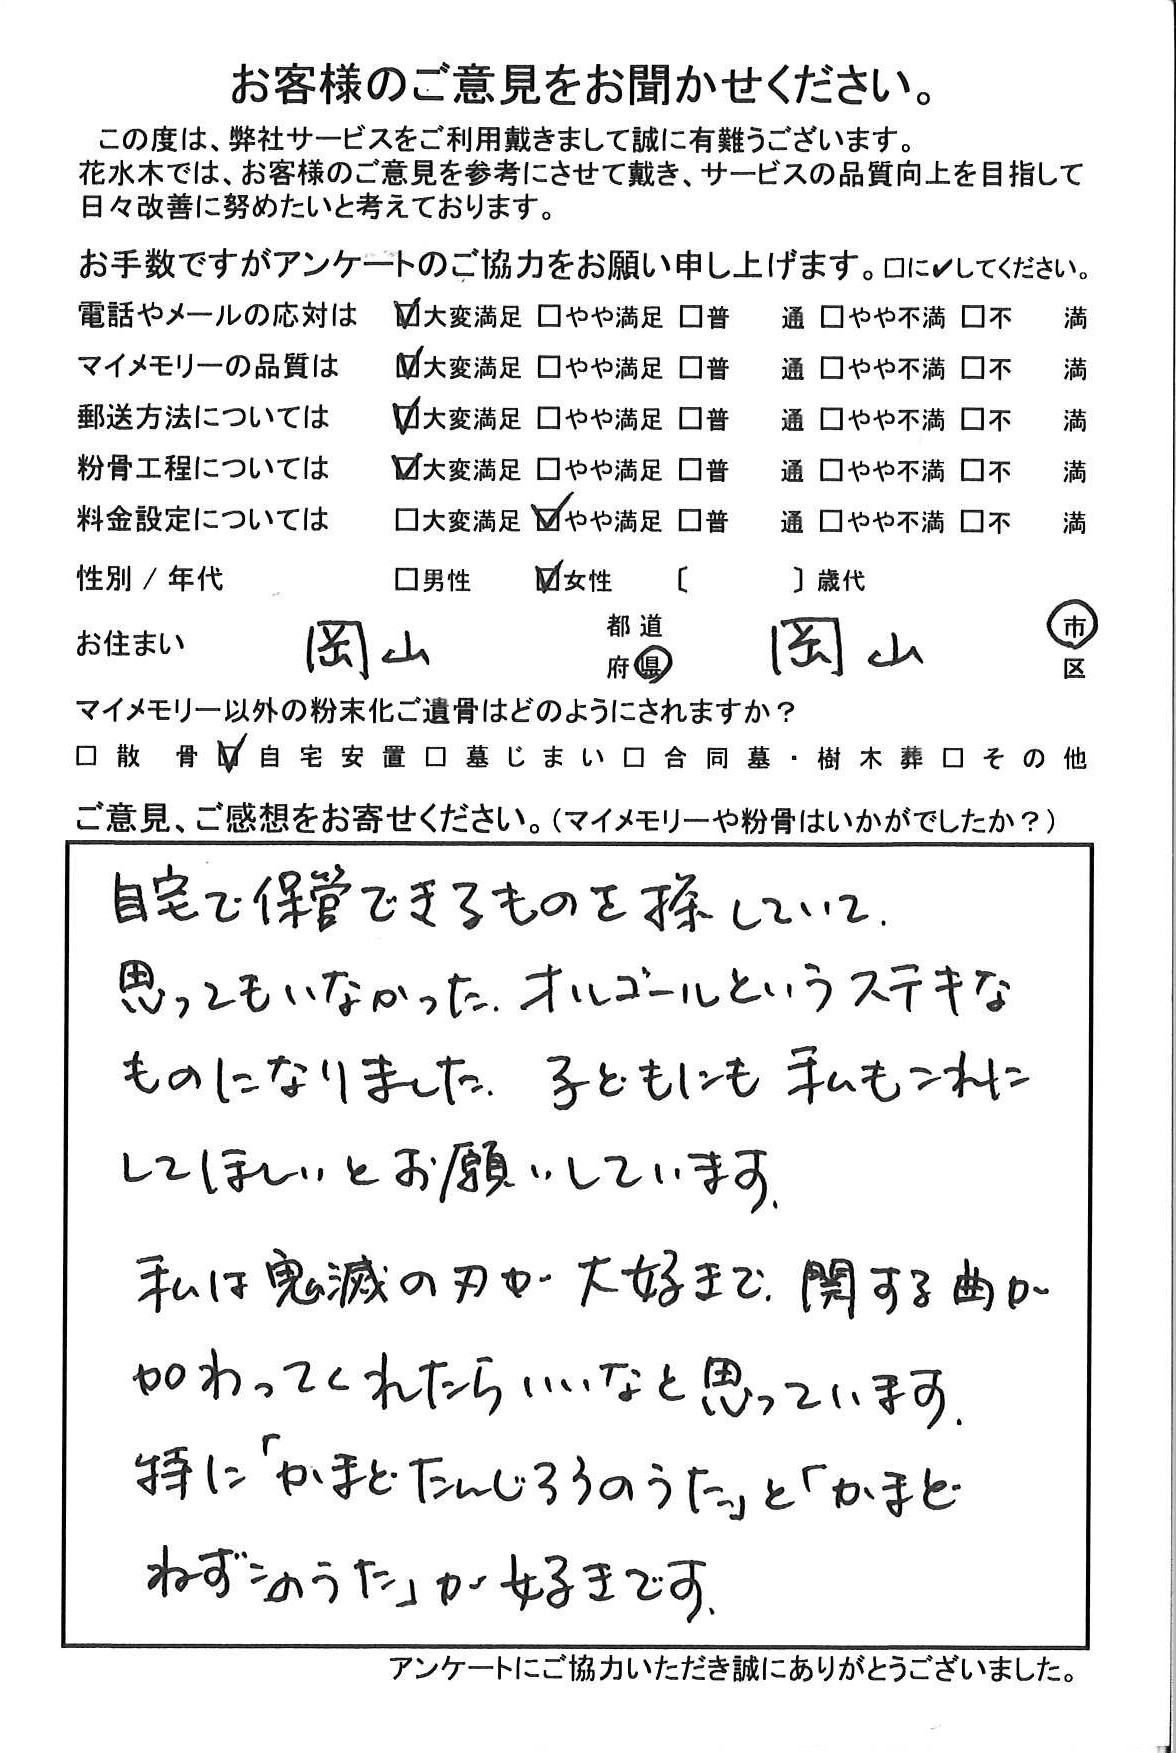 お客様のご意見をお聞かせください。
この度は、弊社サービスをご利用戴きまして誠に有難うございます。
花水木では、お客様のご意見を参考にさせて戴き、サービスの品質向上を目指して
日々改善に努めたいと考えております。
お手数ですがアンケートのご協力をお願い申し上げます。□に✔してください。
電話やメールの応対は ☑大変満足 □やや満足 □普 通 □やや不満 □不 満
マイメモリーの品質は ☑大変満足 □やや満足 □普 通 □やや不満 □不 満
郵送方法については ☑大変満足 □やや満足 □普 通 □やや不満 □不 満
粉骨工程については ☑大変満足 □やや満足 □普 通 □やや不満 □不 満
料金設定については □大変満足 ☑やや満足 □普 通 □やや不満 □不 満
性別 / 年代 □男性 ☑女性 〔 〕歳代
お住まい 岡山 都道府県 岡山 市区
マイメモリー以外の粉末化ご遺骨はどのようにされますか？
□散 骨 ☑自宅安置 □墓じまい □合同墓・樹木葬 □その他
ご意見、ご感想をお寄せください。（マイメモリーや粉骨はいかがでしたか？）
自宅で保管できるものを探していて、
思ってもいなかった、オルゴールというステキな
ものになりました。子どもにも私もこれに
してほしいとお願いしています。
私は鬼滅の刃が大好きで、関する曲が
加わってくれたらいいなと思っています。
特に「かまどたんじろうのうた」と「かまど
ねずこのうた」が好きです。
アンケートにご協力いただき誠にありがとうございました。